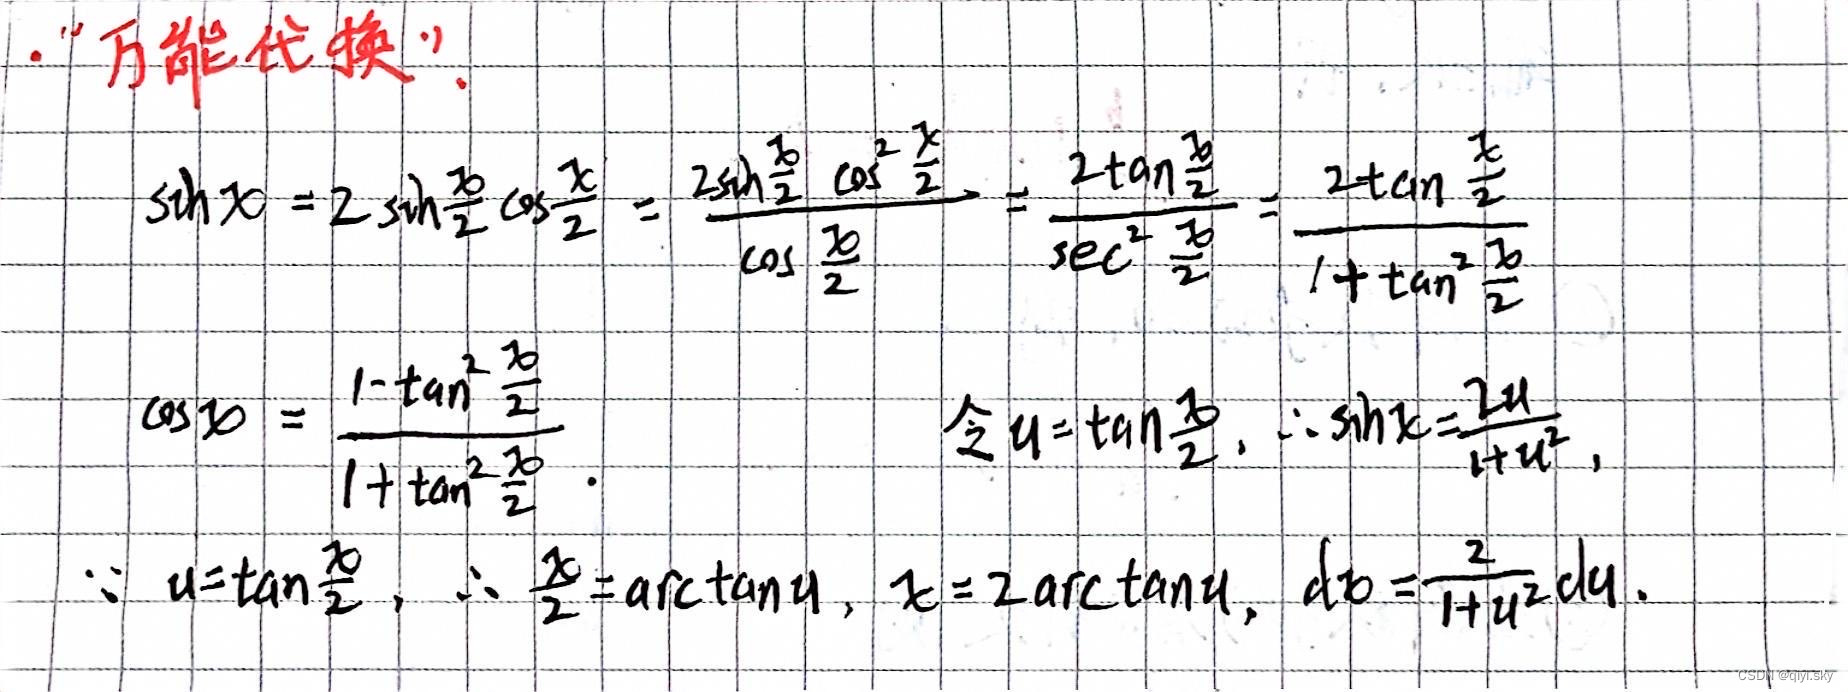 · “万能代换”.
sin x = 2 sin x/2 cos x/2 = (2 sin x/2 cos² x/2)/(cos x/2) = (2 tan x/2)/(sec² x/2) = (2 tan x/2)/(1 + tan² x/2)
cos x = (1 - tan² x/2)/(1 + tan² x/2) . 令 u = tan x/2, ∴ sin x = 2u/(1+u²),
∵ u = tan x/2, ∴ x/2 = arctan u, x = 2 arctan u, dx = 2/(1+u²) du.
CSDN @qiyi.sky